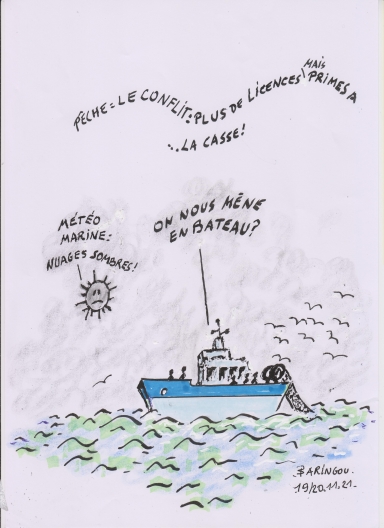 PÊCHE = LE CONFLIT : PLUS DE LICENCES MAIS PRIMES A
...LA CASSE!
MÉTÉO
MARINE :
NUAGES SOMBRES!
ON NOUS MÈNE
EN BATEAU?
BARINGOU.
19/20.11.21.